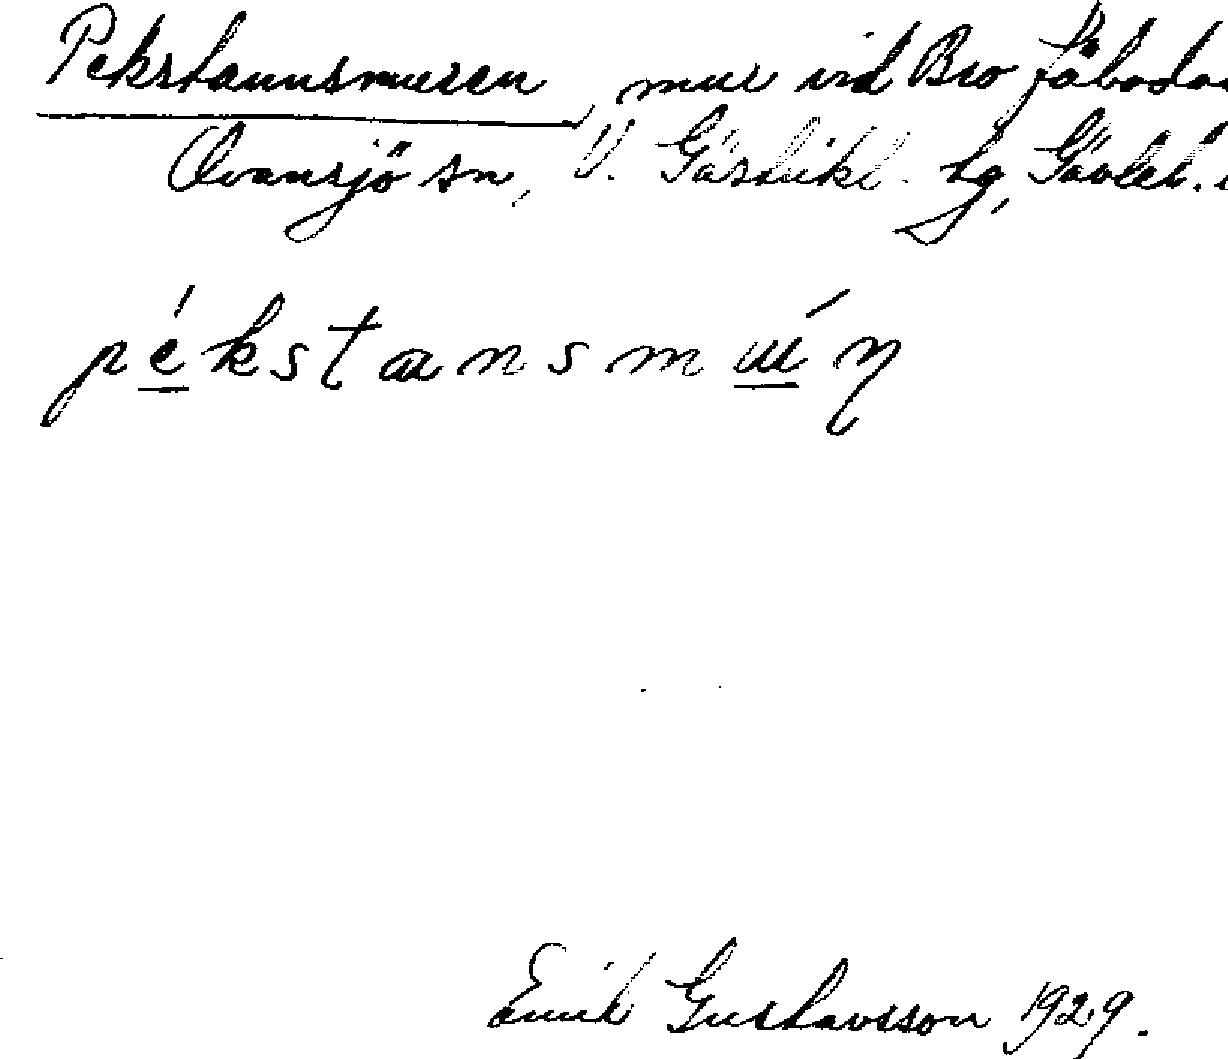 Pekstannsmuren, mur vid Bro fäbodar
Ovansjö sn, V. Gästrikl. tg, Gävleb.
pékstansmúη
Emil Gustavsson 1929.